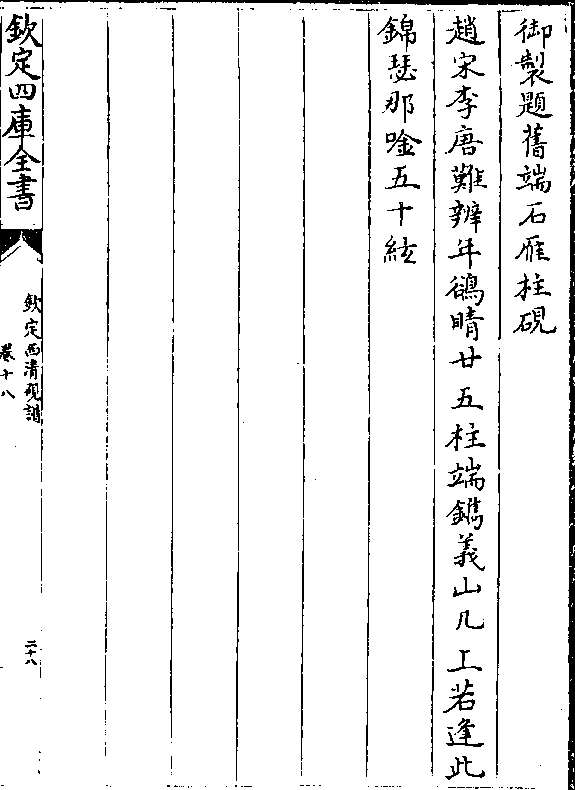 御製題舊端石雁柱硯
趙宋李唐難辨年鵒睛廿五柱端鐫義山几上若逢此
錦瑟那唫五十絃
欽定四庫全書
欽定西清硯譜
卷十八
二十八